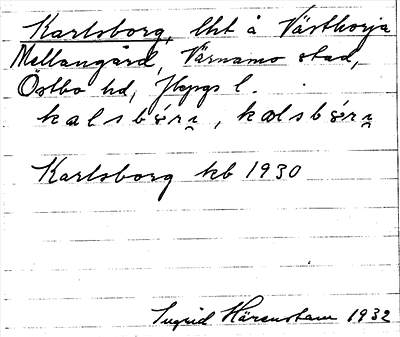 Karlsborg, lht å Västhorja
Mellangård, Värnamo stad,
Östbo hd, Jkpgs l.
Karlsborg kb 1930
Ingrid Härenstam 1932